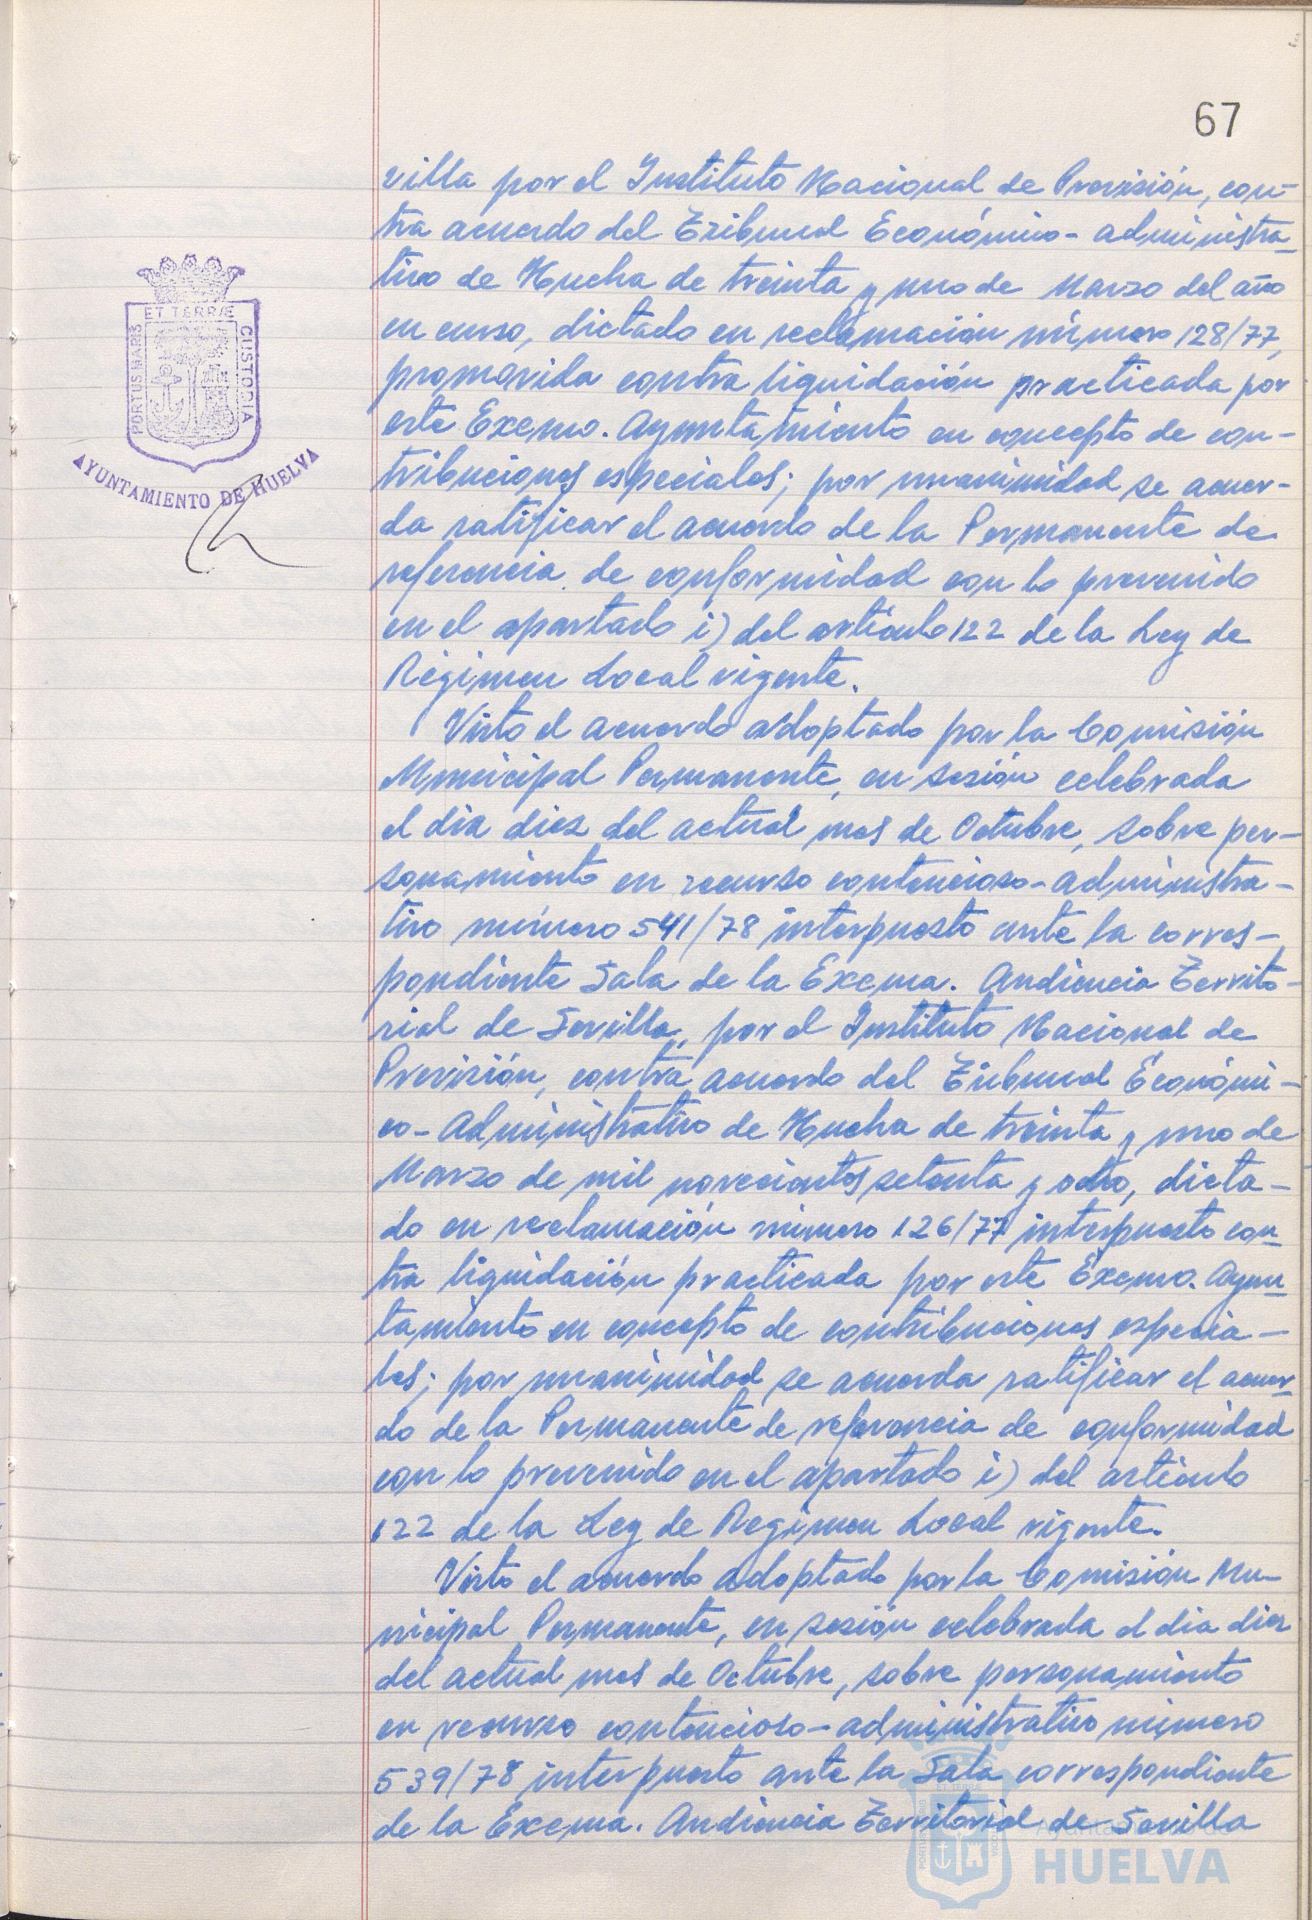 67
villa por el Instituto Nacional de Previsión, con-
tra acuerdo del Tribunal Económico-administra-
tivo de Huelva de treinta y uno de Marzo del año
en curso, dictado en reclamación número 128/77,
promovida contra liquidación practicada por
este Excmo. Ayuntamiento en concepto de con-
tribuciones especiales; por unanimidad se acuer-
da ratificar el acuerdo de la Permanente de
referencia de conformidad con lo prevenido
en el apartado i) del artículo 122 de la Ley de
Régimen Local vigente.
Visto el acuerdo adoptado por la Comisión
Municipal Permanente, en sesión celebrada
el dia diez del actual mes de Octubre, sobre per-
sonamiento en recurso contencioso-administra-
tivo número 541/78 interpuesto ante la corres-
pondiente Sala de la Excma. Audiencia Territo-
rial de Sevilla, por el Instituto Nacional de
Previsión, contra acuerdo del Tribunal Económi-
co-Administrativo de Huelva de treinta y uno de
Marzo de mil novecientos setenta y ocho, dicta-
do en reclamación número 126/77 interpuesto con-
tra liquidación practicada por este Excmo. Ayun-
tamiento en concepto de contribuciones especia-
les; por unanimidad se acuerda ratificar el acuer-
do de la Permanente de referencia de conformidad
con lo prevenido en el apartado i) del artículo
122 de la Ley de Régimen Local vigente.
Visto el acuerdo adoptado por la Comisión Mu-
nicipal Permanente, en sesión celebrada el dia diez
del actual mes de Octubre, sobre personamiento
en recurso contencioso-administrativo número
539/78 interpuesto ante la Sala correspondiente
de la Excma. Audiencia Territorial de Sevilla
PORTUS MARIS
ET TERRÆ
CUSTODIA
AYUNTAMIENTO DE HUELVA
PORTUS MARIS
ET TERRÆ
CUSTODIA
Ayuntamiento de
HUELVA